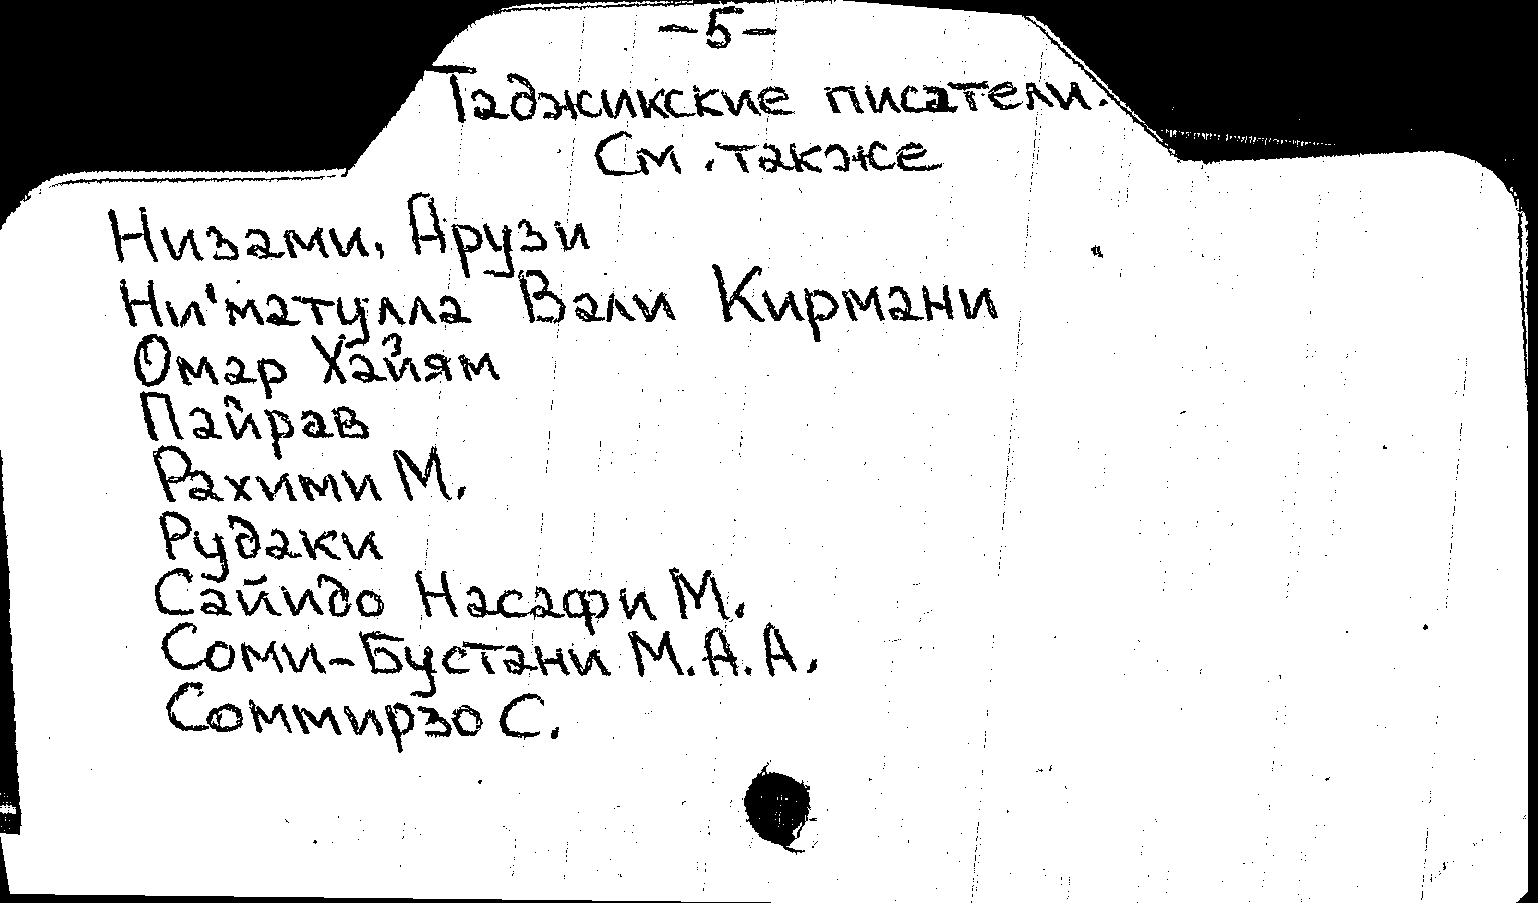 -5-
Таджикские писатели.
См. также
Низами, Арузи
Ни'матулла Вали Кирмани
Омар Хайям
Пайрав
Рахими М.
Рудаки
Сайидо Насафи М.
Соми-Бустани М.А.А.
Соммирзо С.